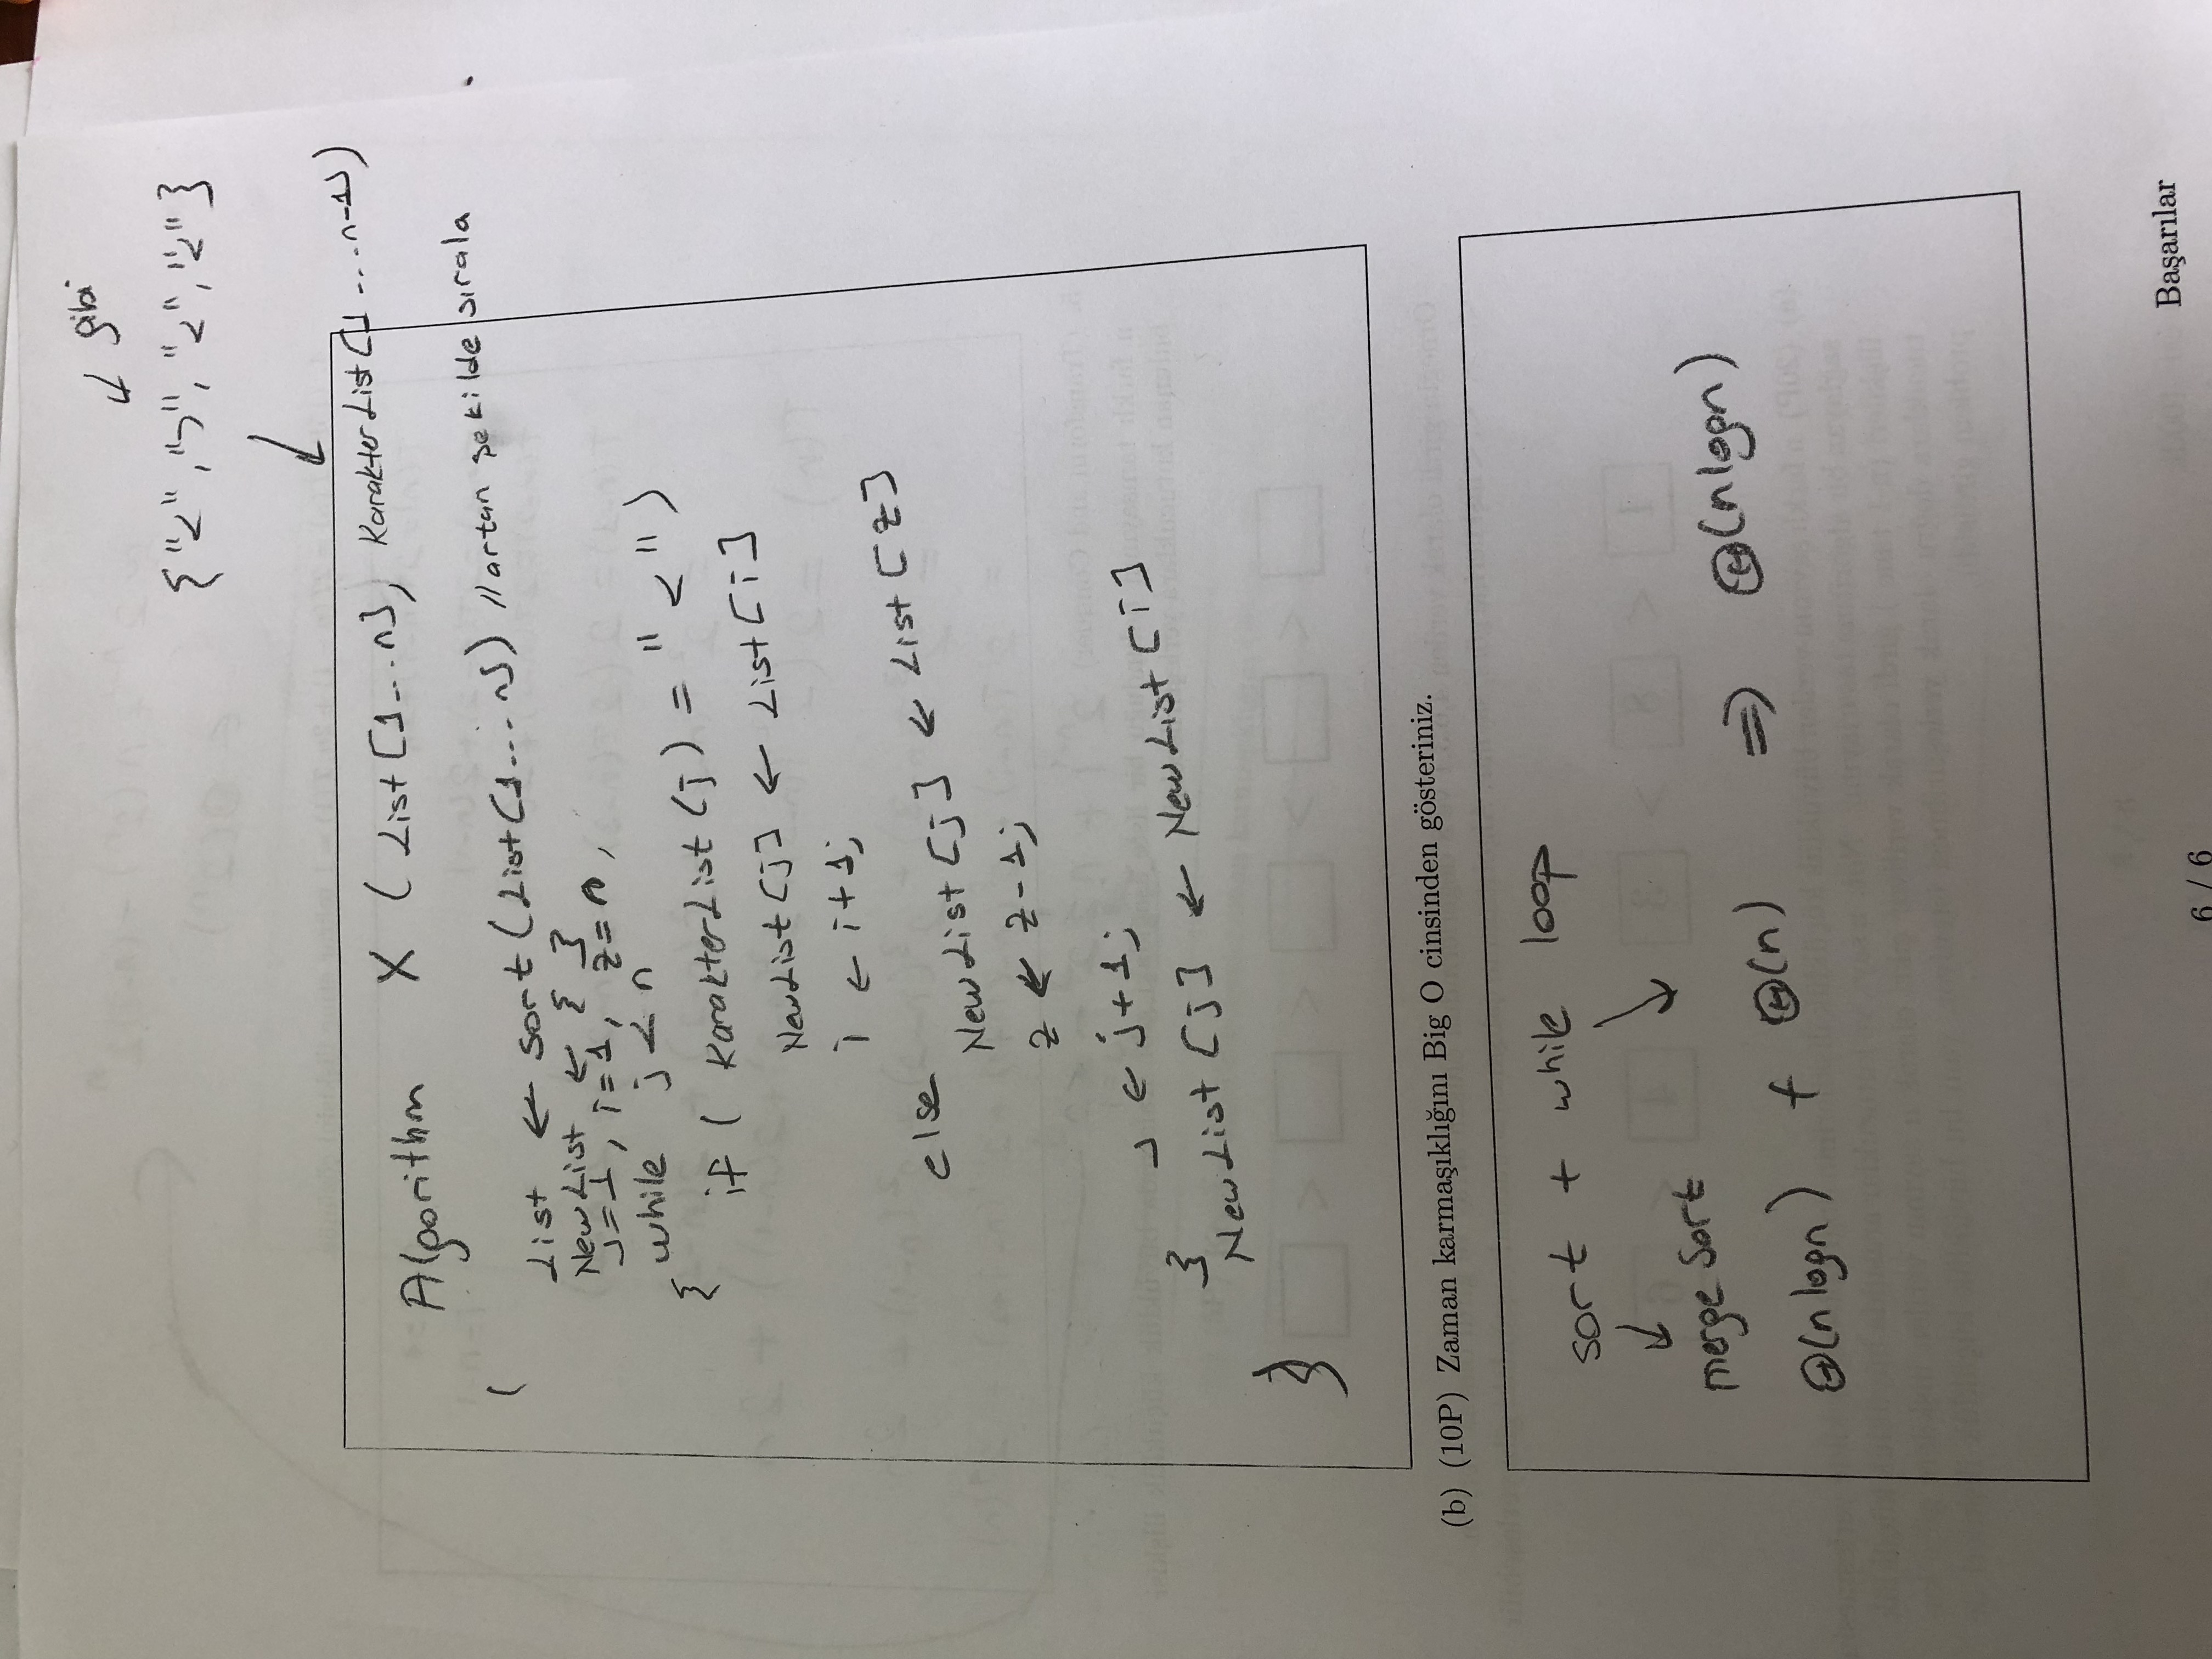 ↓ gibi
{"<", ">", "<", "<"}
↓
Algorithm X (List[1...n], KarakterList[1...n-1])
{
List ← sort(List[1...n]) //artan şekilde sırala
NewList ← { }
j=1, i=1, z=n,
while j < n
{
if ( KarakterList(j) = "<")
NewList[j] ← List[i]
i ← i+1;
else
NewList[j] ← List[z]
z ← z-1;
j ← j+1;
}
NewList[j] ← NewList[i]
}
(b) (10P) Zaman karmaşıklığını Big O cinsinden gösteriniz.
sort + while loop
↓ ↓
merge Sort
Θ(nlogn) + Θ(n) ⇒ Θ(nlogn)
Başarılar
6 / 6